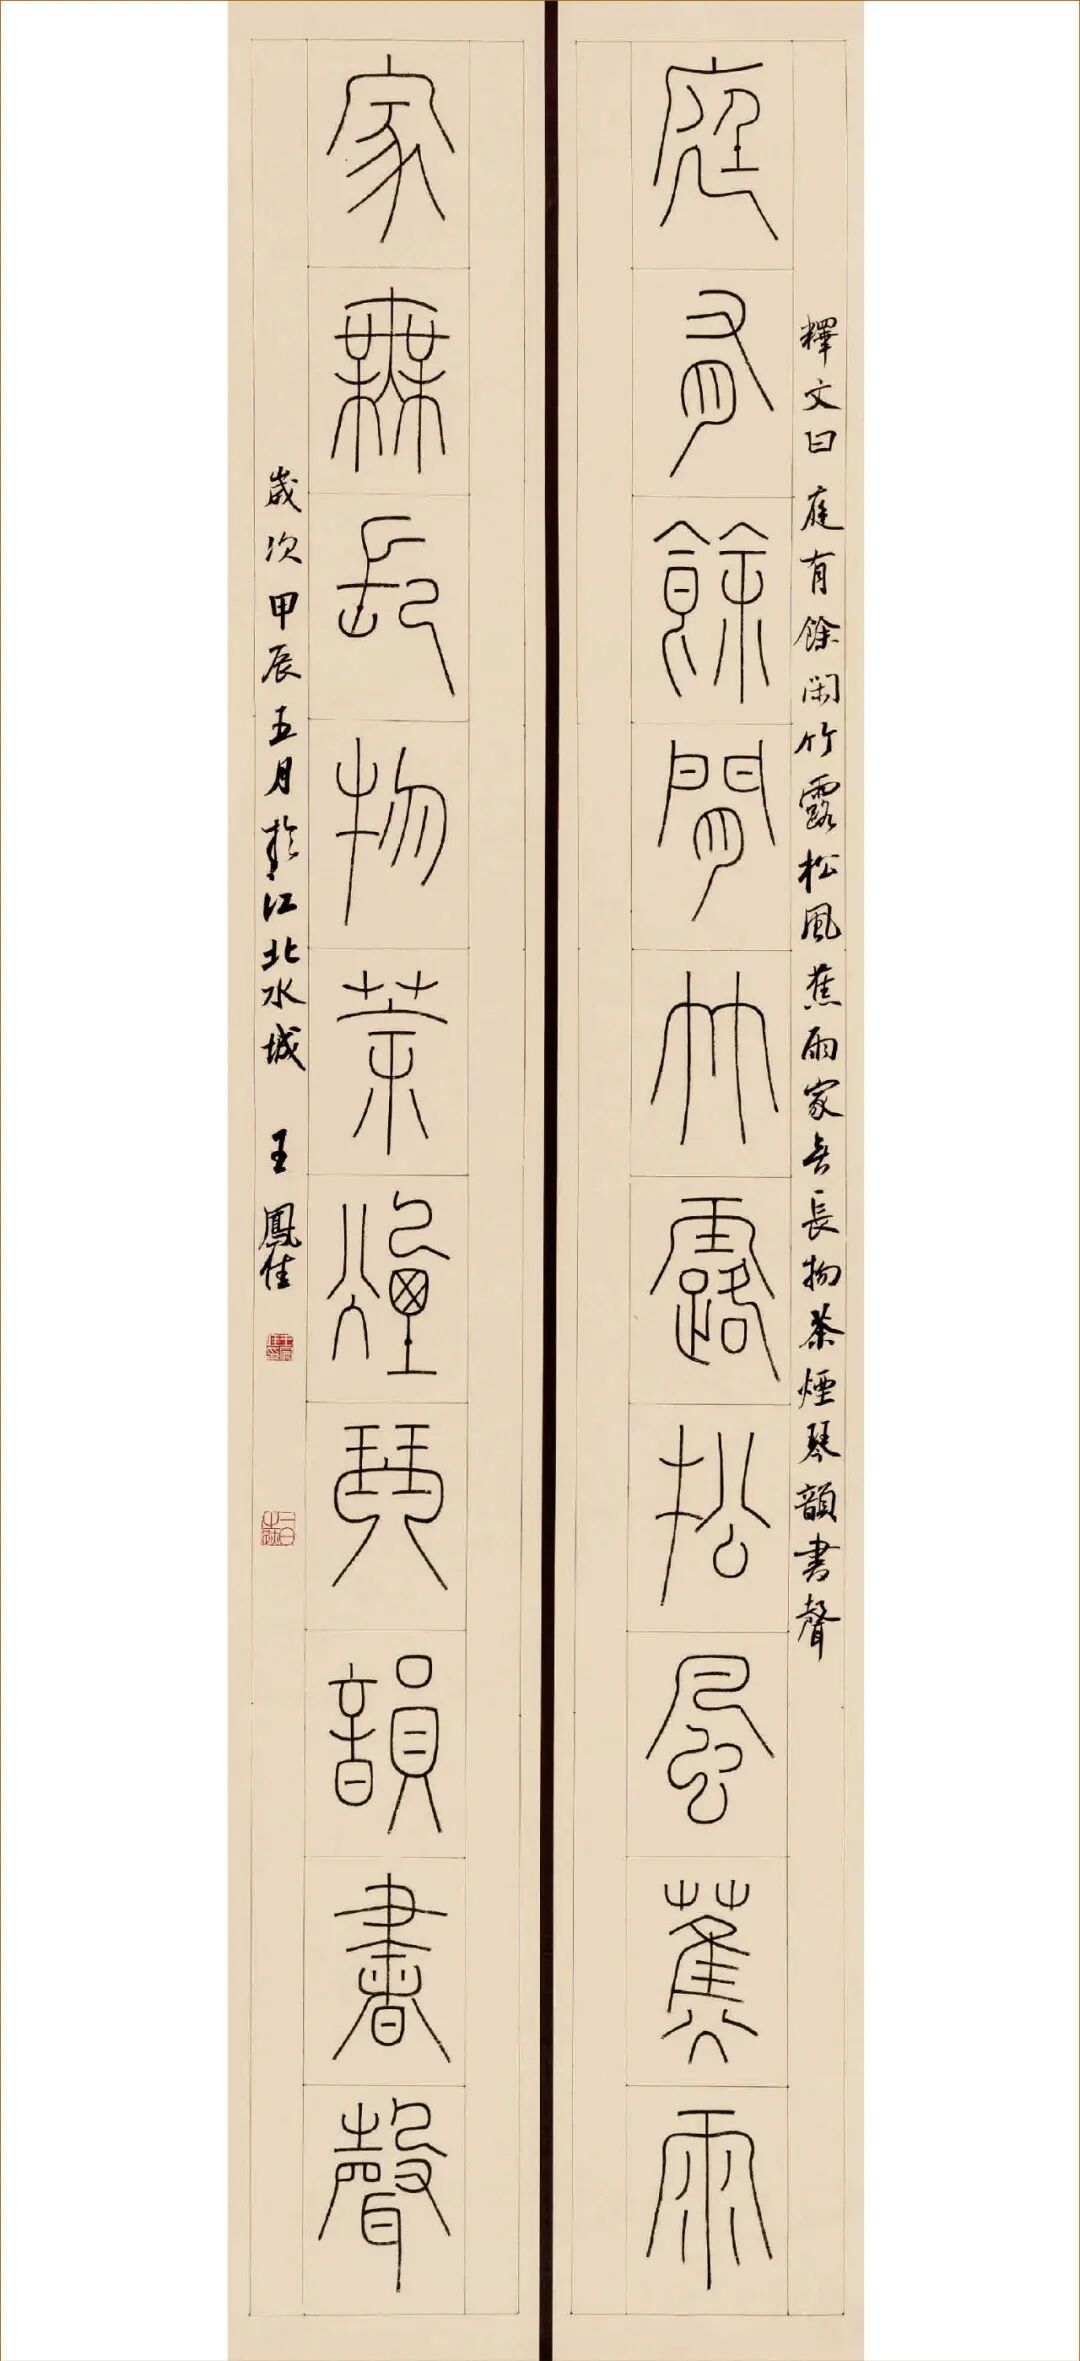 釋文曰庭有餘閑竹露松風蕉雨家無長物茶煙琴韻書聲
庭有餘閒竹露松風蕉雨
家無長物茶煙琴韻書聲
歲次甲辰五月於江北水城王鳳佳